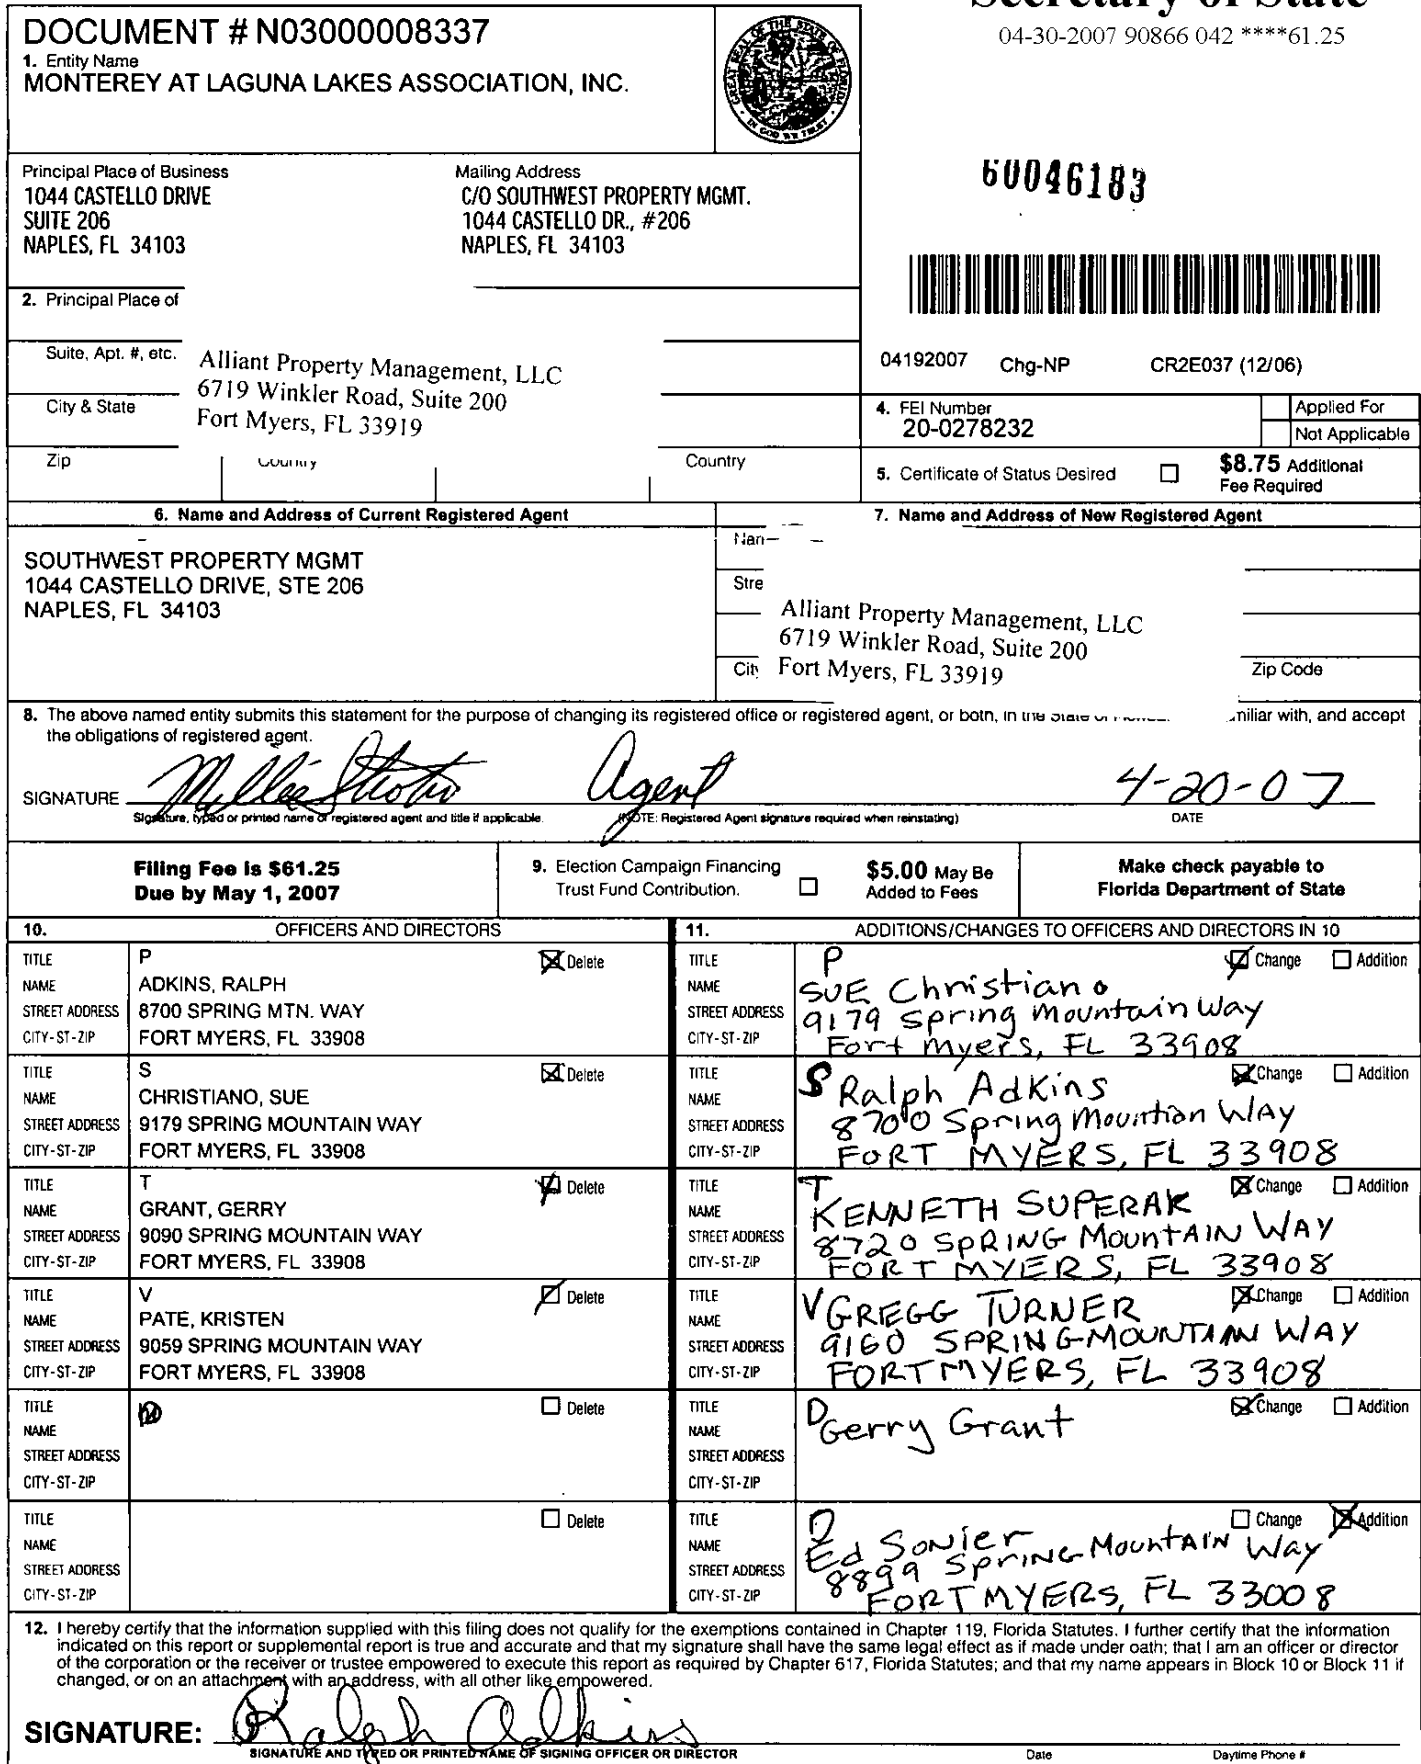 Secretary of State
04-30-2007 90866 042 ****61.25
DOCUMENT # N03000008337
1. Entity Name
MONTEREY AT LAGUNA LAKES ASSOCIATION, INC.
GREAT SEAL OF THE STATE OF FLORIDA
IN GOD WE TRUST
Principal Place of Business
1044 CASTELLO DRIVE
SUITE 206
NAPLES, FL 34103
Mailing Address
C/O SOUTHWEST PROPERTY MGMT.
1044 CASTELLO DR., #206
NAPLES, FL 34103
60046183
2. Principal Place of
Suite, Apt. #, etc.
City & State
Zip
Country
Country
Alliant Property Management, LLC
6719 Winkler Road, Suite 200
Fort Myers, FL 33919
04192007 Chg-NP CR2E037 (12/06)
4. FEI Number
20-0278232
Applied For
Not Applicable
5. Certificate of Status Desired
$8.75 Additional
Fee Required
6. Name and Address of Current Registered Agent
SOUTHWEST PROPERTY MGMT
1044 CASTELLO DRIVE, STE 206
NAPLES, FL 34103
7. Name and Address of New Registered Agent
Nan
Stre
Alliant Property Management, LLC
6719 Winkler Road, Suite 200
City Fort Myers, FL 33919 Zip Code
8. The above named entity submits this statement for the purpose of changing its registered office or registered agent, or both, in the State of miliar with, and accept
the obligations of registered agent.
SIGNATURE Millie Agent 4-20-07
Signature, typed or printed name of registered agent and title if applicable. (NOTE: Registered Agent signature required when reinstating) DATE
Filing Fee is $61.25
Due by May 1, 2007
9. Election Campaign Financing
Trust Fund Contribution.
$5.00 May Be
Added to Fees
Make check payable to
Florida Department of State
10. OFFICERS AND DIRECTORS
TITLE P Delete
NAME ADKINS, RALPH
STREET ADDRESS 8700 SPRING MTN. WAY
CITY-ST-ZIP FORT MYERS, FL 33908
TITLE S Delete
NAME CHRISTIANO, SUE
STREET ADDRESS 9179 SPRING MOUNTAIN WAY
CITY-ST-ZIP FORT MYERS, FL 33908
TITLE T Delete
NAME GRANT, GERRY
STREET ADDRESS 9090 SPRING MOUNTAIN WAY
CITY-ST-ZIP FORT MYERS, FL 33908
TITLE V Delete
NAME PATE, KRISTEN
STREET ADDRESS 9059 SPRING MOUNTAIN WAY
CITY-ST-ZIP FORT MYERS, FL 33908
TITLE Delete
NAME
STREET ADDRESS
CITY-ST-ZIP
TITLE Delete
NAME
STREET ADDRESS
CITY-ST-ZIP
11. ADDITIONS/CHANGES TO OFFICERS AND DIRECTORS IN 10
TITLE P Change Addition
NAME SUE Christiano
STREET ADDRESS 9179 Spring Mountain Way
CITY-ST-ZIP Fort Myers, FL 33908
TITLE S Change Addition
NAME Ralph Adkins
STREET ADDRESS 8700 Spring Mountian WAY
CITY-ST-ZIP FORT MYERS, FL 33908
TITLE T Change Addition
NAME KENNETH SUPERAK
STREET ADDRESS 8720 SPRING MOUNTAIN WAY
CITY-ST-ZIP FORT MYERS, FL 33908
TITLE V Change Addition
NAME GREGG TURNER
STREET ADDRESS 9160 SPRING MOUNTAIN WAY
CITY-ST-ZIP FORT MYERS, FL 33908
TITLE D Change Addition
NAME Gerry Grant
STREET ADDRESS
CITY-ST-ZIP
TITLE D Change Addition
NAME Ed Sonier
STREET ADDRESS 8899 Spring Mountain Way
CITY-ST-ZIP FORT MYERS, FL 33008
12. I hereby certify that the information supplied with this filing does not qualify for the exemptions contained in Chapter 119, Florida Statutes. I further certify that the information
indicated on this report or supplemental report is true and accurate and that my signature shall have the same legal effect as if made under oath; that I am an officer or director
of the corporation or the receiver or trustee empowered to execute this report as required by Chapter 617, Florida Statutes; and that my name appears in Block 10 or Block 11 if
changed, or on an attachment with an address, with all other like empowered.
SIGNATURE: Ralph Adkins
SIGNATURE AND TYPED OR PRINTED NAME OF SIGNING OFFICER OR DIRECTOR Date Daytime Phone #